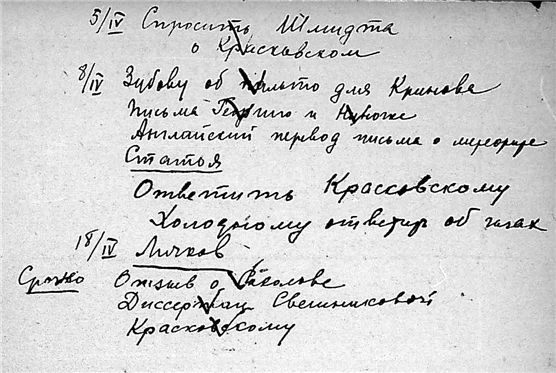 5/IV Спросить Шмидта
о Красковском
8/IV Зубову об пальто для Кринова
Письма Георгию и
Английский перевод письма о метеорите
Статья
Ответить Крассовскому
Холодному ответить об
18/IV Личков
Срочно Отзыв о Соколове
Диссертац Свешниковой
Красковскому